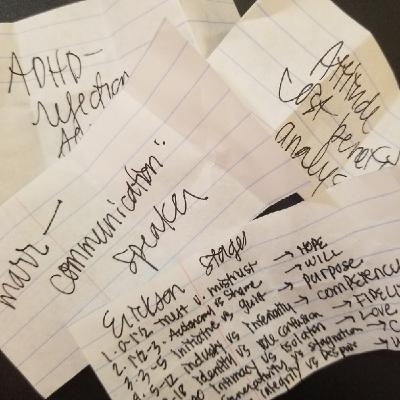 ADHD-
Attitude
Cost benefit
analys
marr-
communication:
speaker
Erickson stages
1. 0-1½ trust v. mistrust → HOPE
2. 1½-3 Autonomy vs shame → WILL
3. 3-5 initiative vs guilt → purpose
5-12 industry vs inferiority → competence
identity vs role confusion → FIDELI
intimacy vs isolation → Love
generativity vs stagnation → C
integrity vs Despair